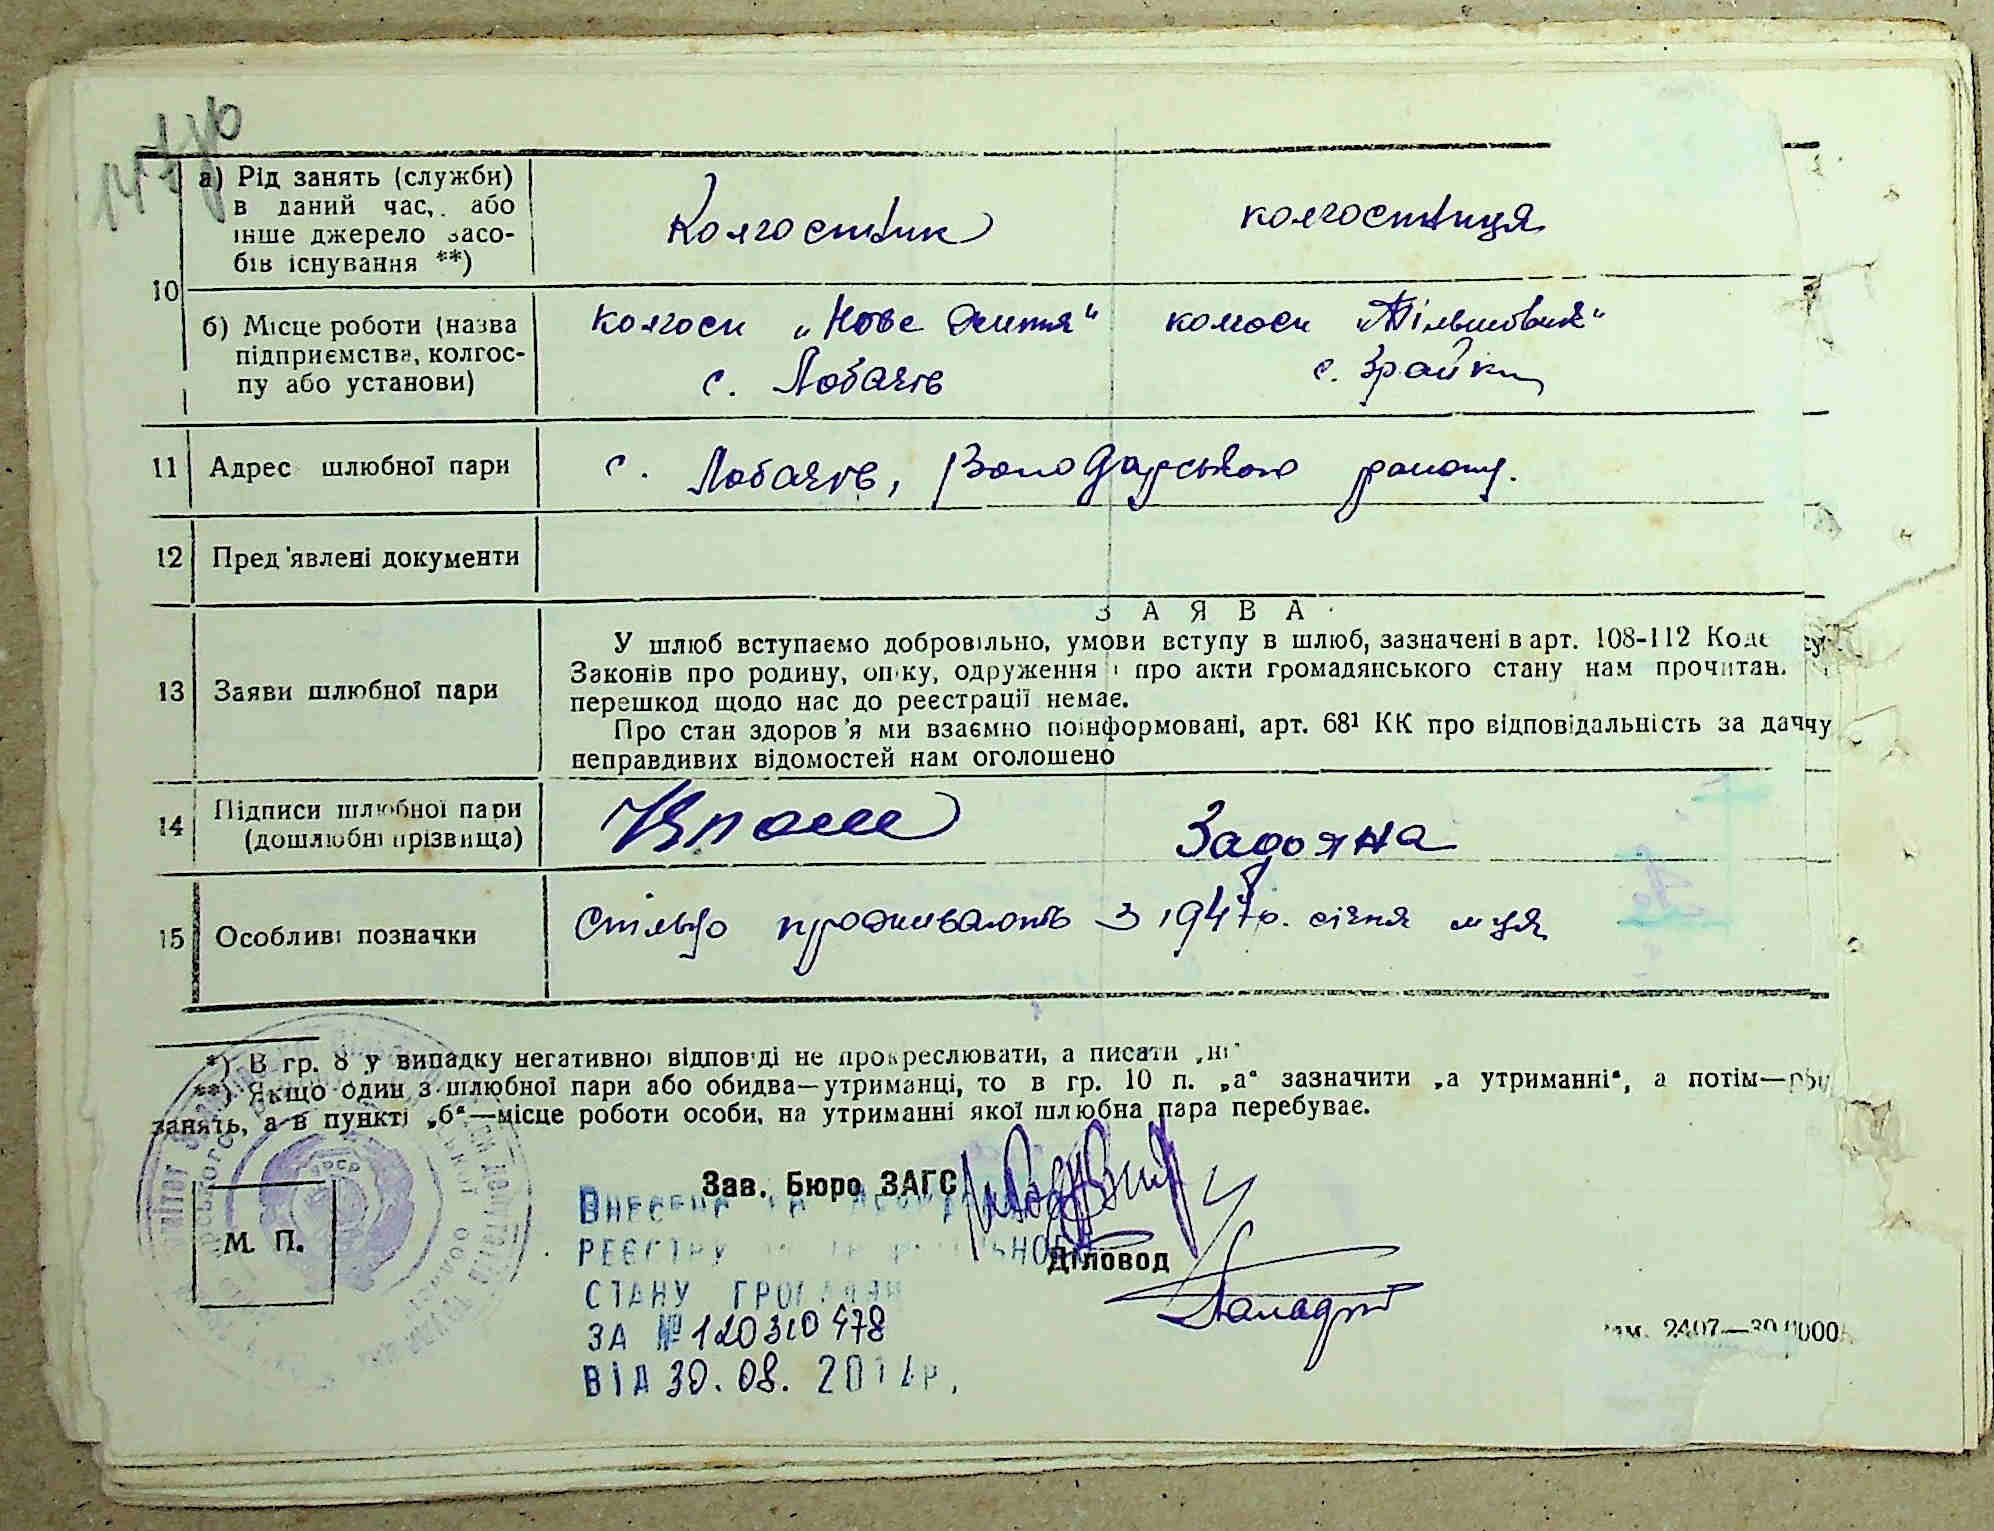 а) Рід занять (служби)
в даний час, або
інше джерело засо-
бів існування **)
Колгоспник
колгоспниця
10
б) Місце роботи (назва
підприємства, колгос-
пу або установи)
колгосп „Нове життя“
с. Лобачів
колгосп „Більшовик“
с. Зрайки
11 Адрес шлюбної пари
с. Лобачів, Володарського району.
12 Пред'явлені документи
13 Заяви шлюбної пари
ЗАЯВА
У шлюб вступаємо добровільно, умови вступу в шлюб, зазначені в арт. 108-112 Кодексу
Законів про родину, опіку, одруження і про акти громадянського стану нам прочитані.
перешкод щодо нас до реєстрації немає.
Про стан здоров'я ми взаємно поінформовані, арт. 68¹ КК про відповідальність за даччу
неправдивих відомостей нам оголошено
14 Підписи шлюбної пари
(дошлюбні прізвища)
Задояна
15 Особливі позначки
Спільно проживають з 1947 р. січня м-ця
*) В гр. 8 у випадку негативної відповіді не прокреслювати, а писати „ні“
**) Якщо один з шлюбної пари або обидва—утриманці, то в гр. 10 п. „а“ зазначити „а утриманні“, а потім—рід
занять, а в пункті „б“—місце роботи особи, на утриманні якої шлюбна пара перебуває.
М. П.
Зав. Бюро ЗАГС
Діловод
ВНЕСЕНО ДО
РЕЄСТРУ
СТАНУ ГРОМАДЯН
ЗА № 120310478
ВІД 30.08. 201 р.
2407—30.000